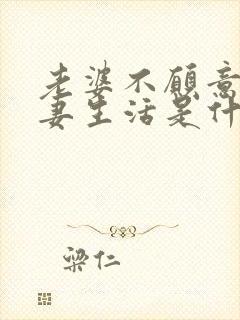 老婆不愿意
妻生活是什
梁仁